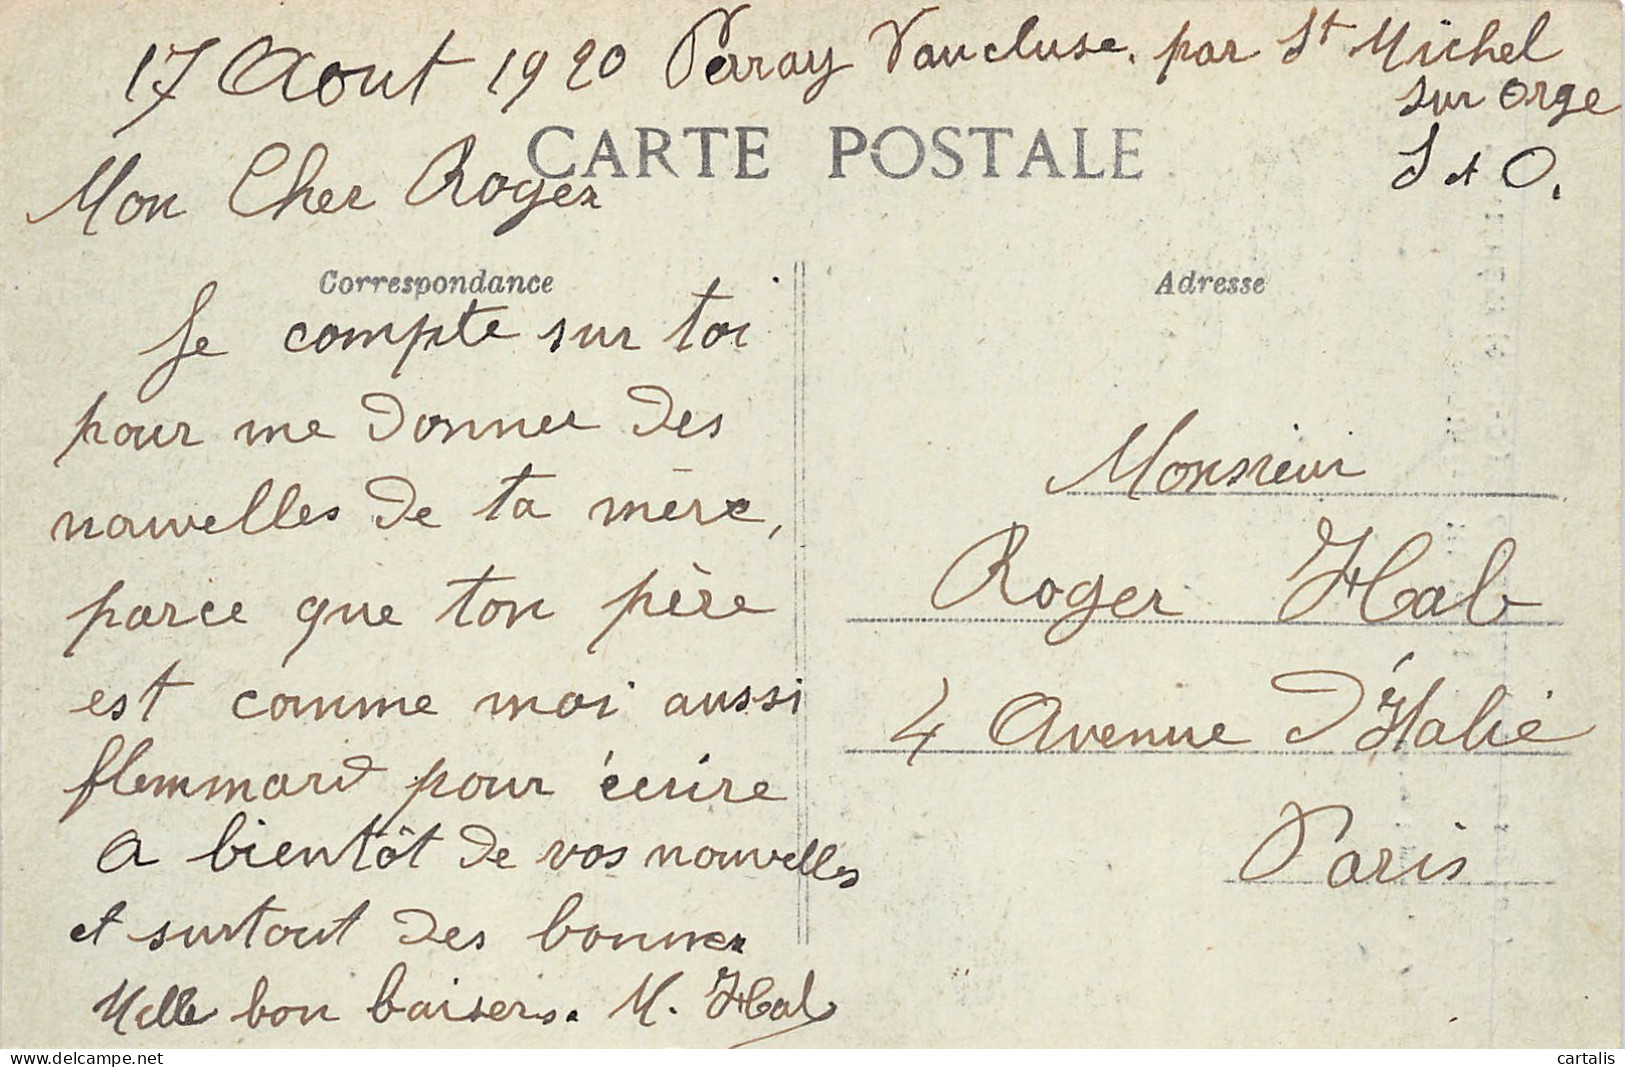 17 Aout 1920 Perray Vaucluse. par St Michel
sur Orge
S et O.
CARTE POSTALE
Mon Cher Roger
Correspondance
Je compte sur toi
pour me donner des
nouvelles de ta mère,
parce que ton père
est comme moi aussi
flemmard pour écrire
A bientôt de vos nouvelles
et surtout des bonnes
Melle bon baisers. M. Hab
Adresse
Monsieur
Roger Hab
4 Avenue d'Italie
Paris
delcampe.net
cartalis